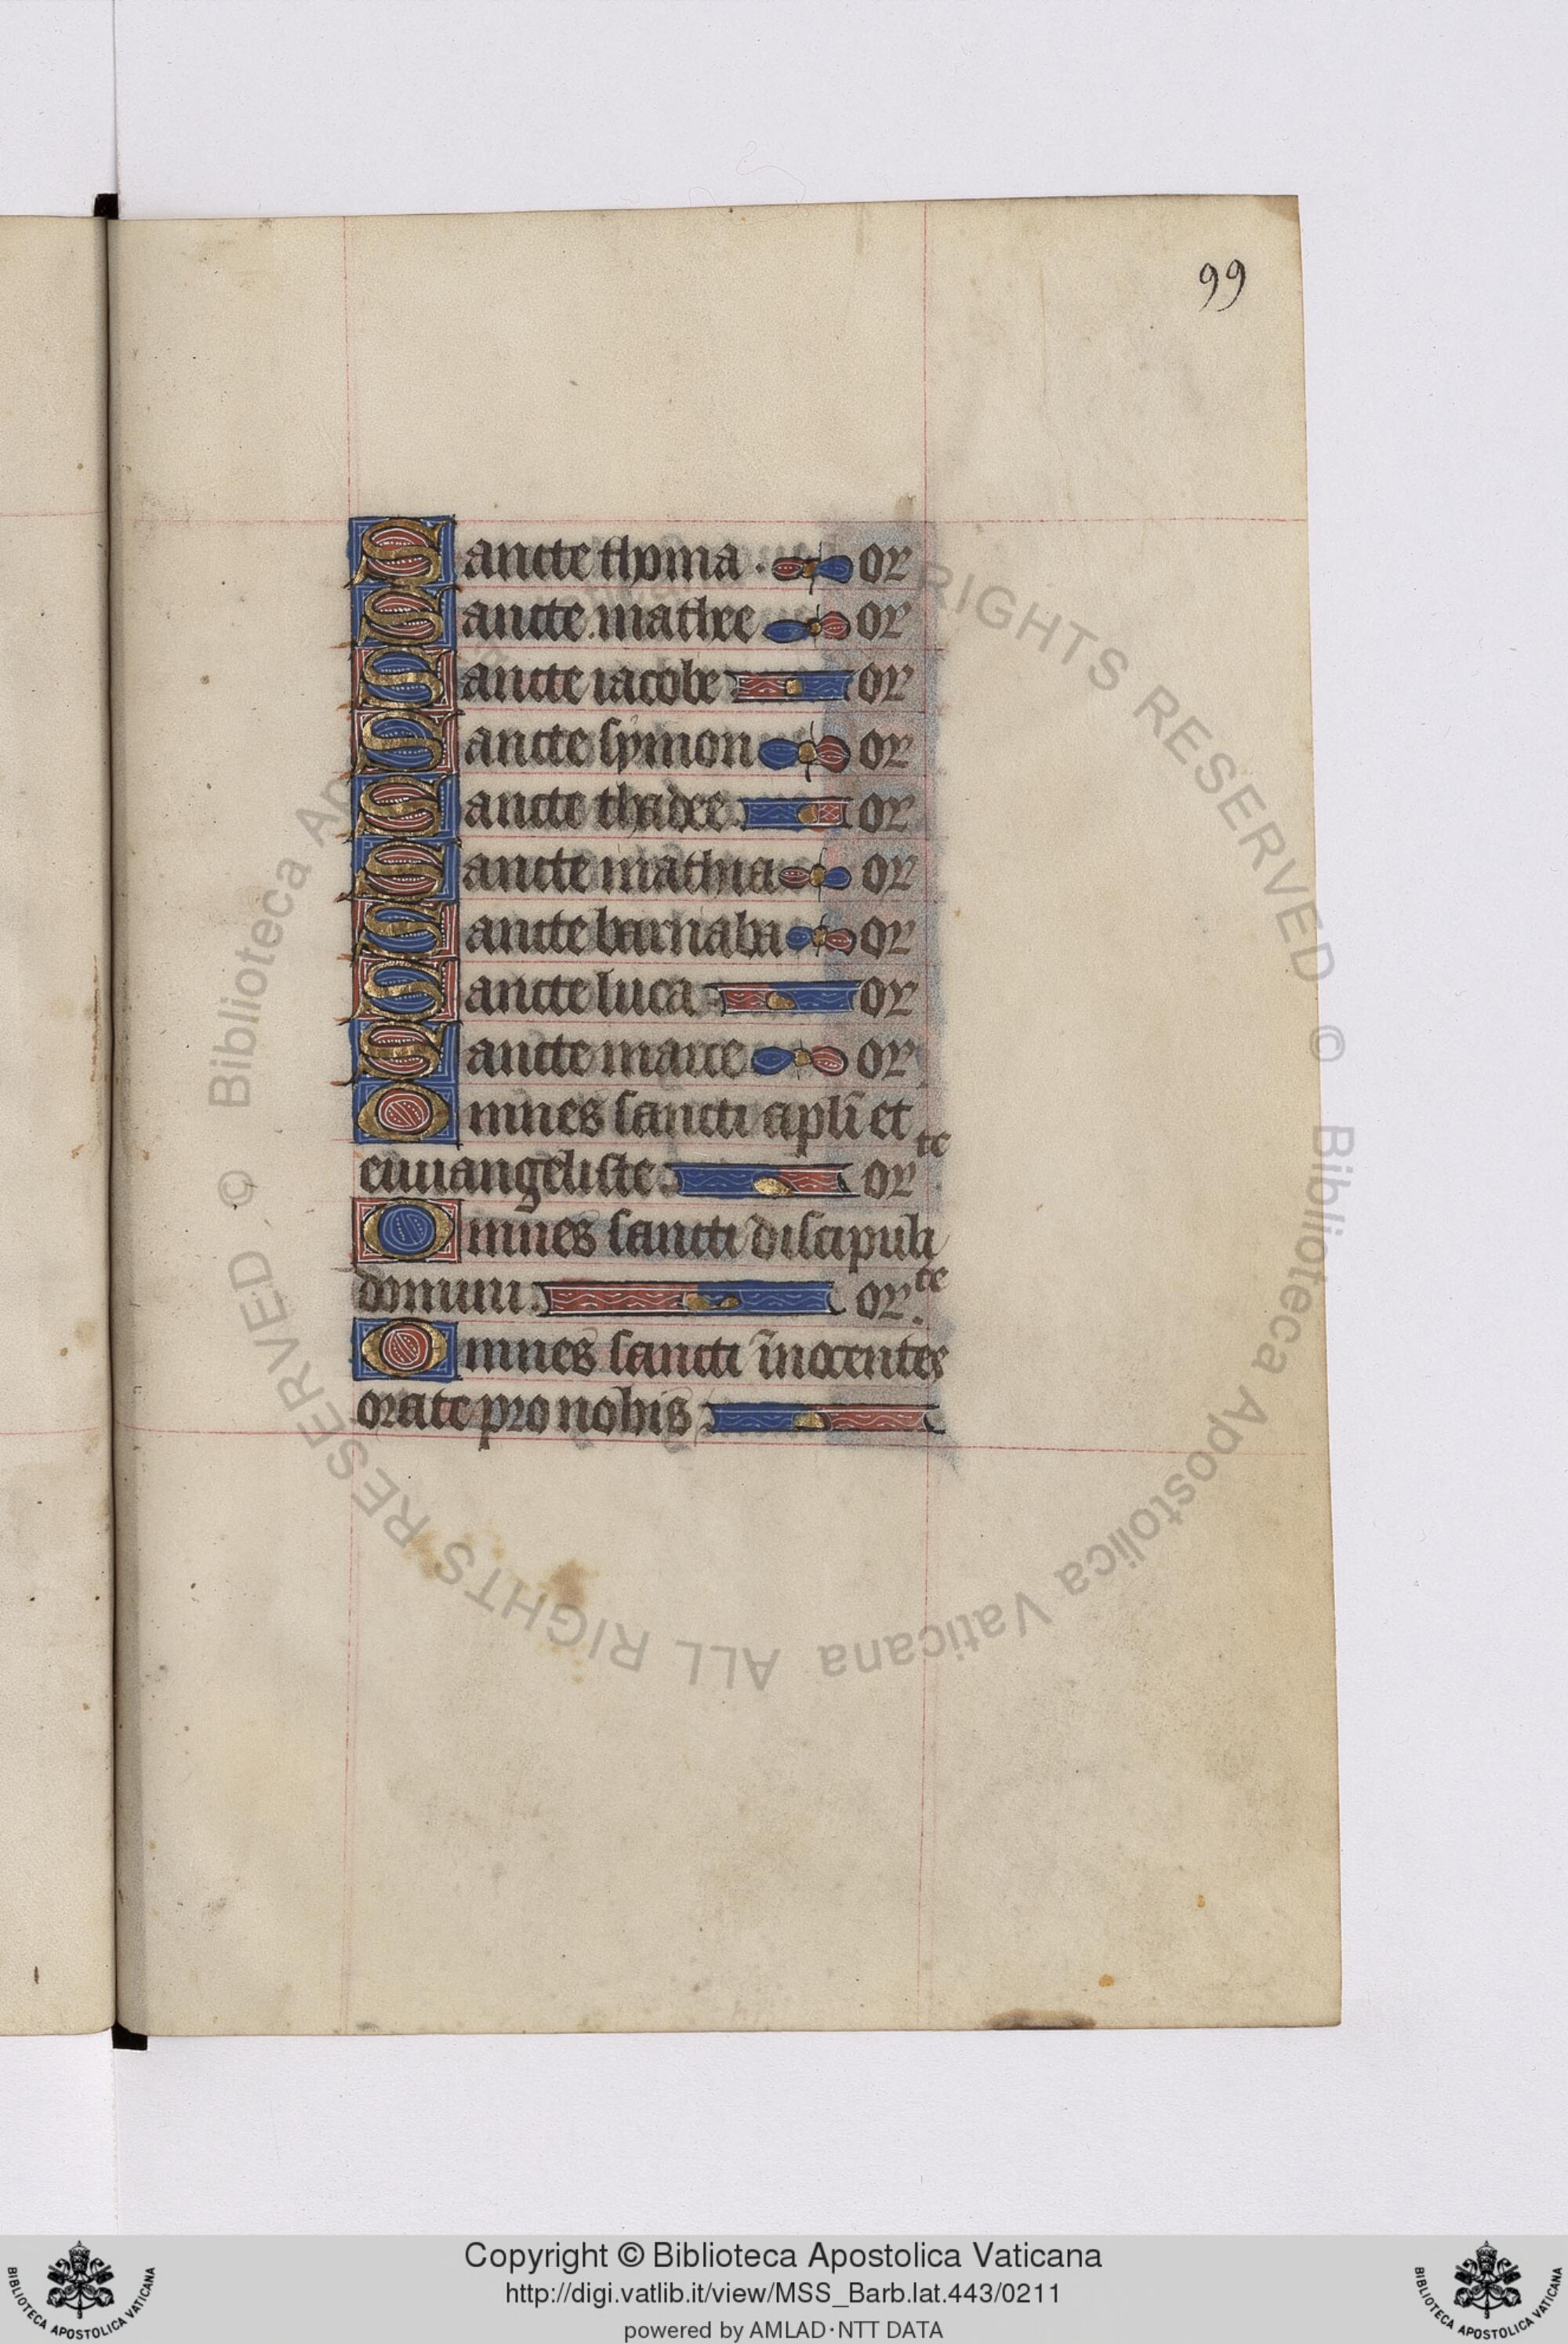 99
Sancte thoma . or
Sancte mathee or
Sancte iacobe or
Sancte symon or
Sancte thadee or
Sancte mathia or
Sancte barnaba or
Sancte luca or
Sancte marce or
Omnes sancti apli̅ et
euuangeliste or te
Omnes sancti discipuli
domini . or te
Omnes sancti i̅nocentes
orate pro nobis
© Biblioteca Apostolica Vaticana ALL RIGHTS RESERVED
Copyright © Biblioteca Apostolica Vaticana
http://digi.vatlib.it/view/MSS_Barb.lat.443/0211
powered by AMLAD·NTT DATA
BIBLIOTECA APOSTOLICA VATICANA
BIBLIOTECA APOSTOLICA VATICANA